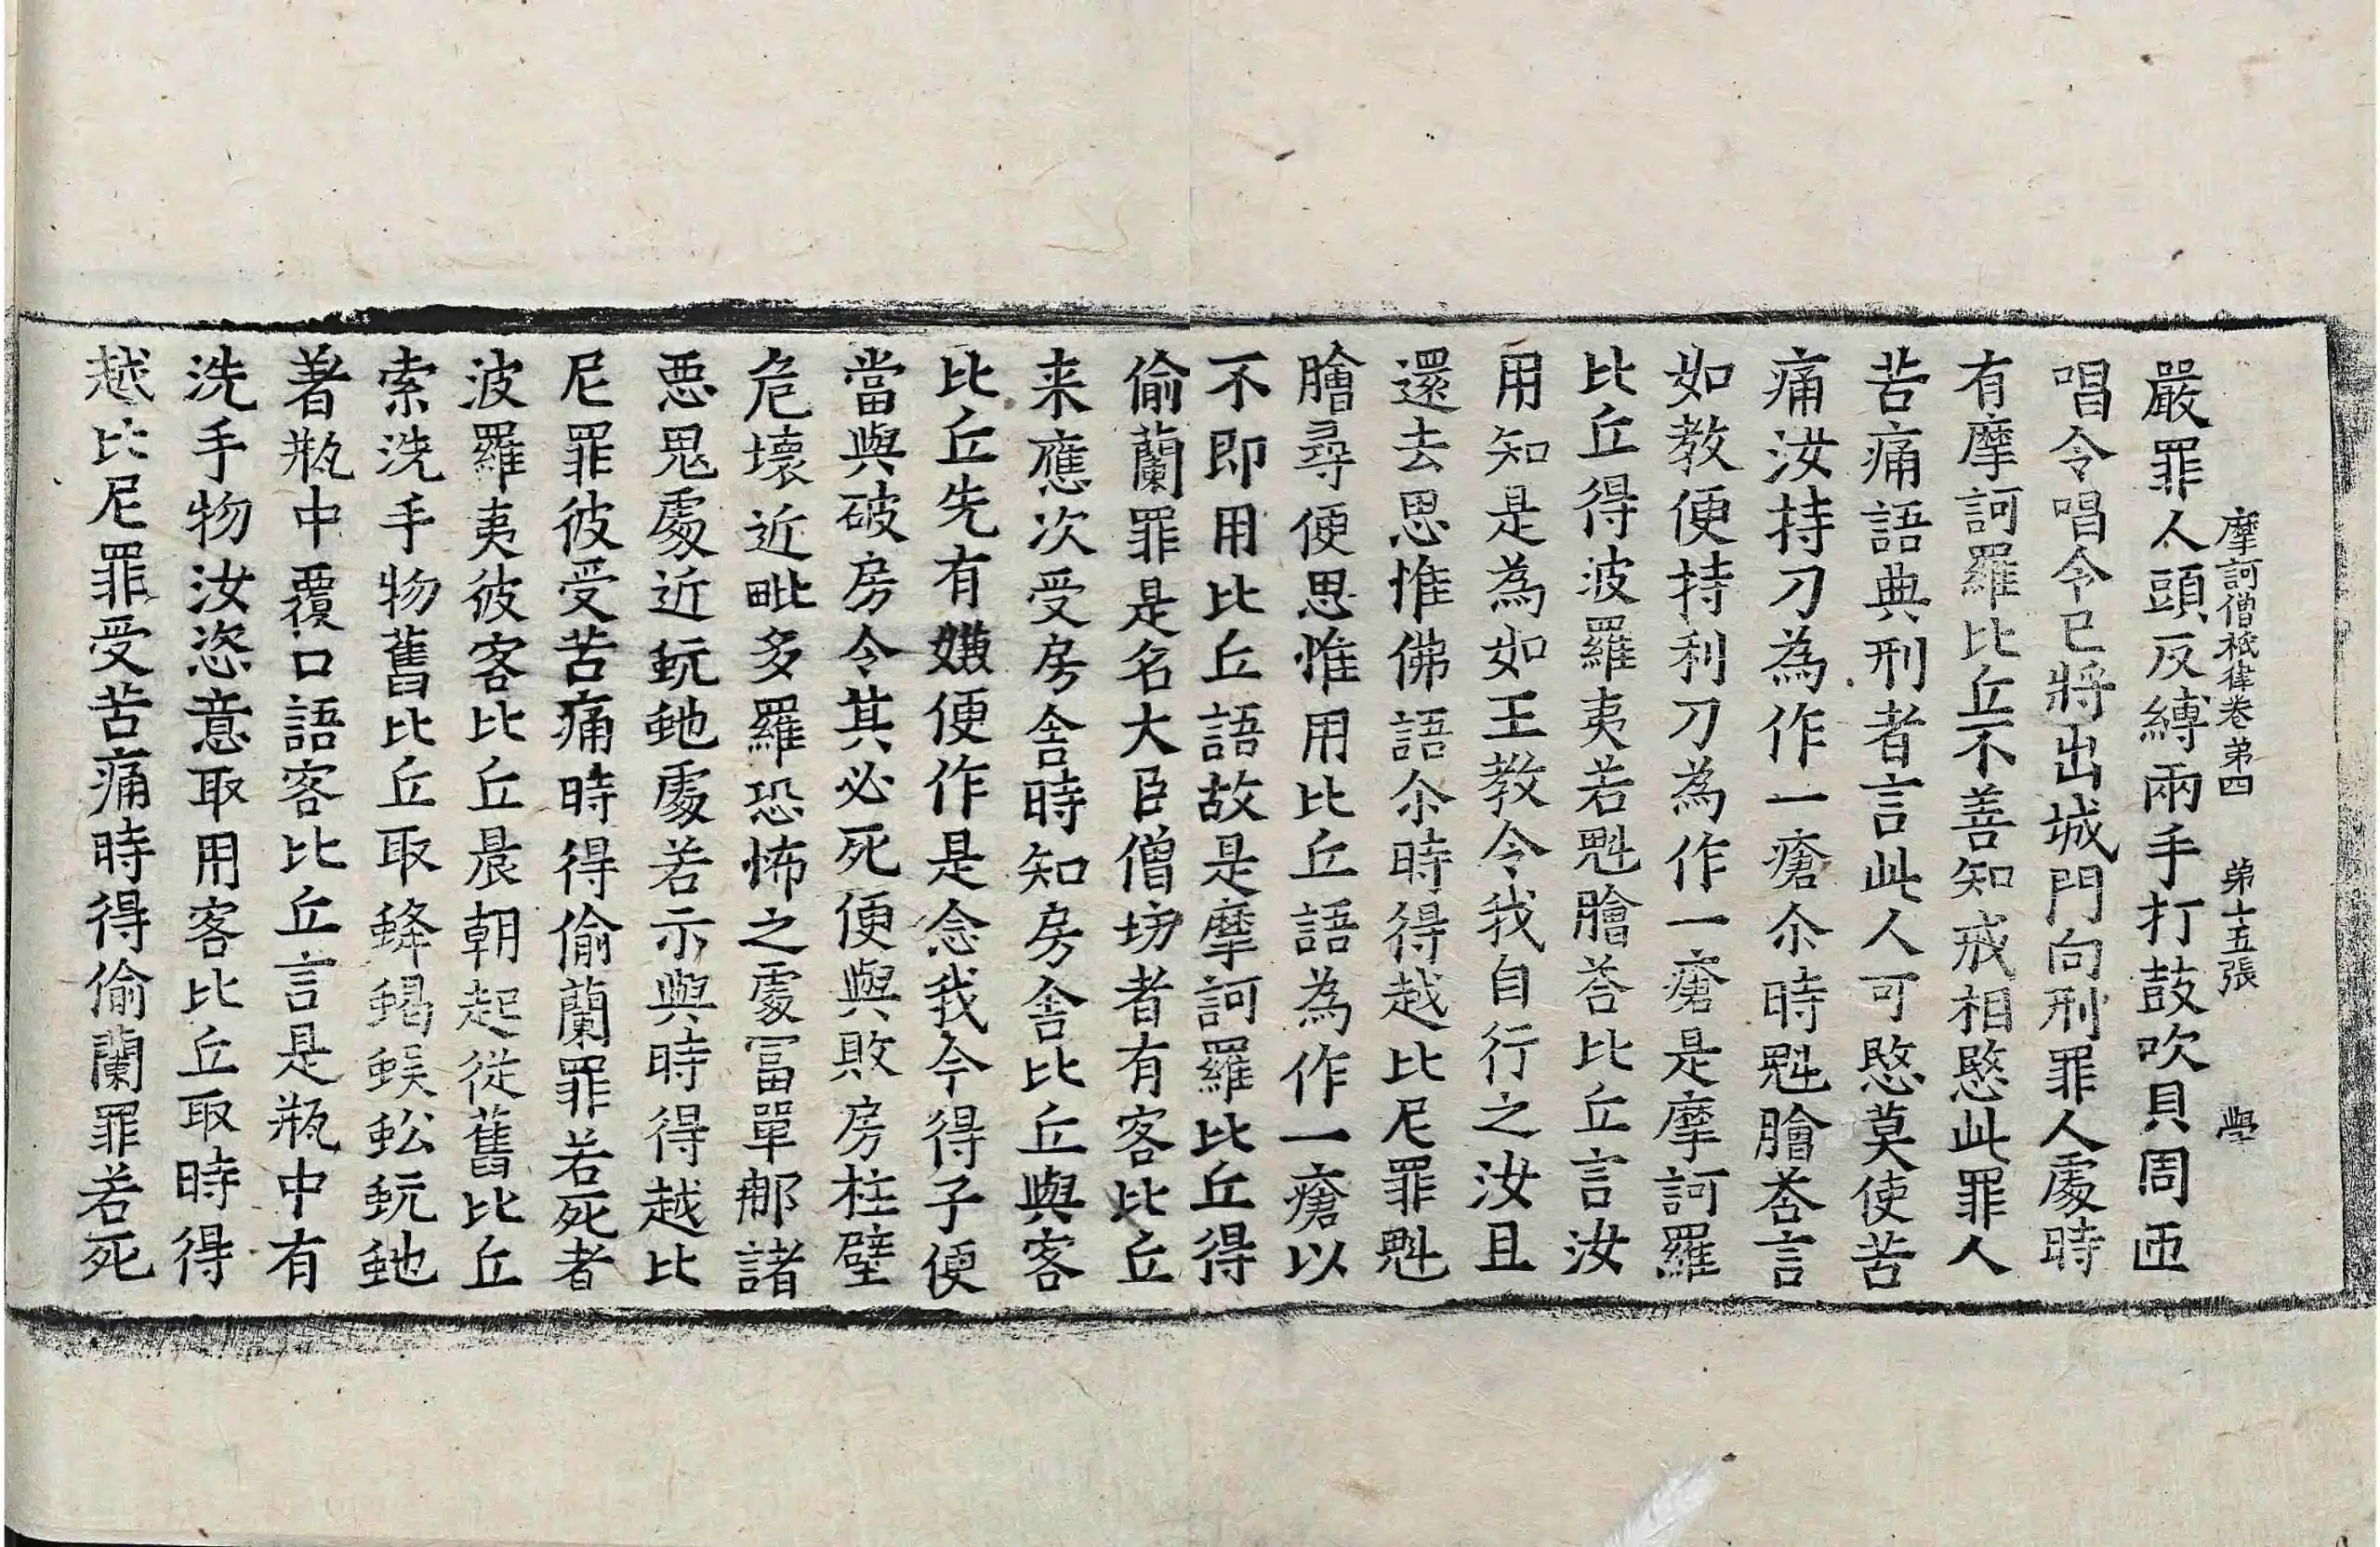 摩訶僧祇律卷第四 第十五張 學
嚴罪人頭反縛兩手打鼓吹貝周匝
唱令唱令已將出城門向刑罪人處時
有摩訶羅比丘不善知戒相愍此罪人
苦痛語典刑者言此人可愍莫使苦
痛汝持刀為作一瘡尒時魁膾荅言
如教便持利刀為作一瘡是摩訶羅
比丘得波羅夷若魁膾荅比丘言汝
用知是為如王教令我自行之汝且
還去思惟佛語尒時得越比尼罪魁
膾尋便思惟用比丘語為作一瘡以
不即用比丘語故是摩訶羅比丘得
偷蘭罪是名大臣僧坊者有客比丘
来應次受房舍時知房舍比丘與客
比丘先有嫌便作是念我今得子便
當與破房令其必死便與敗房柱壁
危壞近毗多羅恐怖之處冨單那諸
惡鬼處近蚖虵處若示與時得越比
尼罪彼受苦痛時得偷蘭罪若死者
波羅夷彼客比丘晨朝起從舊比丘
索洗手物舊比丘取蜂蝎蜈蚣蚖虵
著瓶中覆口語客比丘言是瓶中有
洗手物汝恣意取用客比丘取時得
越比尼罪受苦痛時得偷蘭罪若死